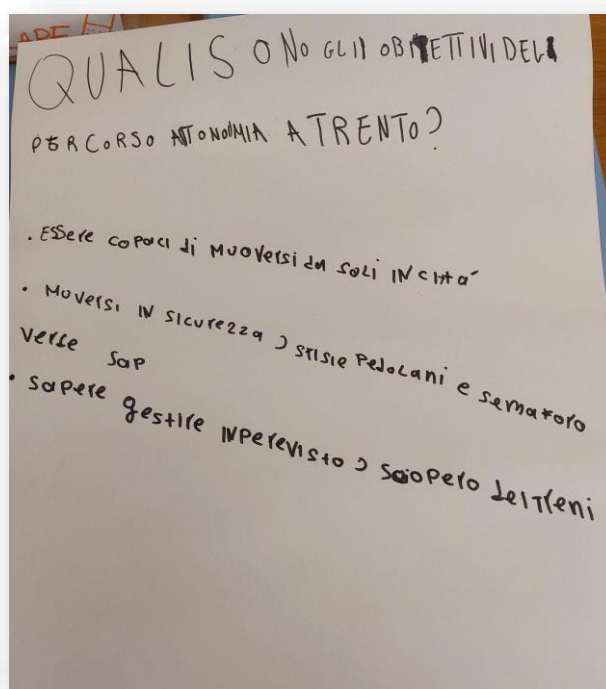 APE
QUALI SONO GLI OBIETTIVI DEL
PERCORSO AUTONOMIA A TRENTO?
. ESSere copaci di MuoVersi da soli IN citta'
. Muversi IN Sicurezza ) strisie Pedolani e semaforo
Verse sap
. sapere gestire INperevisto ) sciopero dei Treni